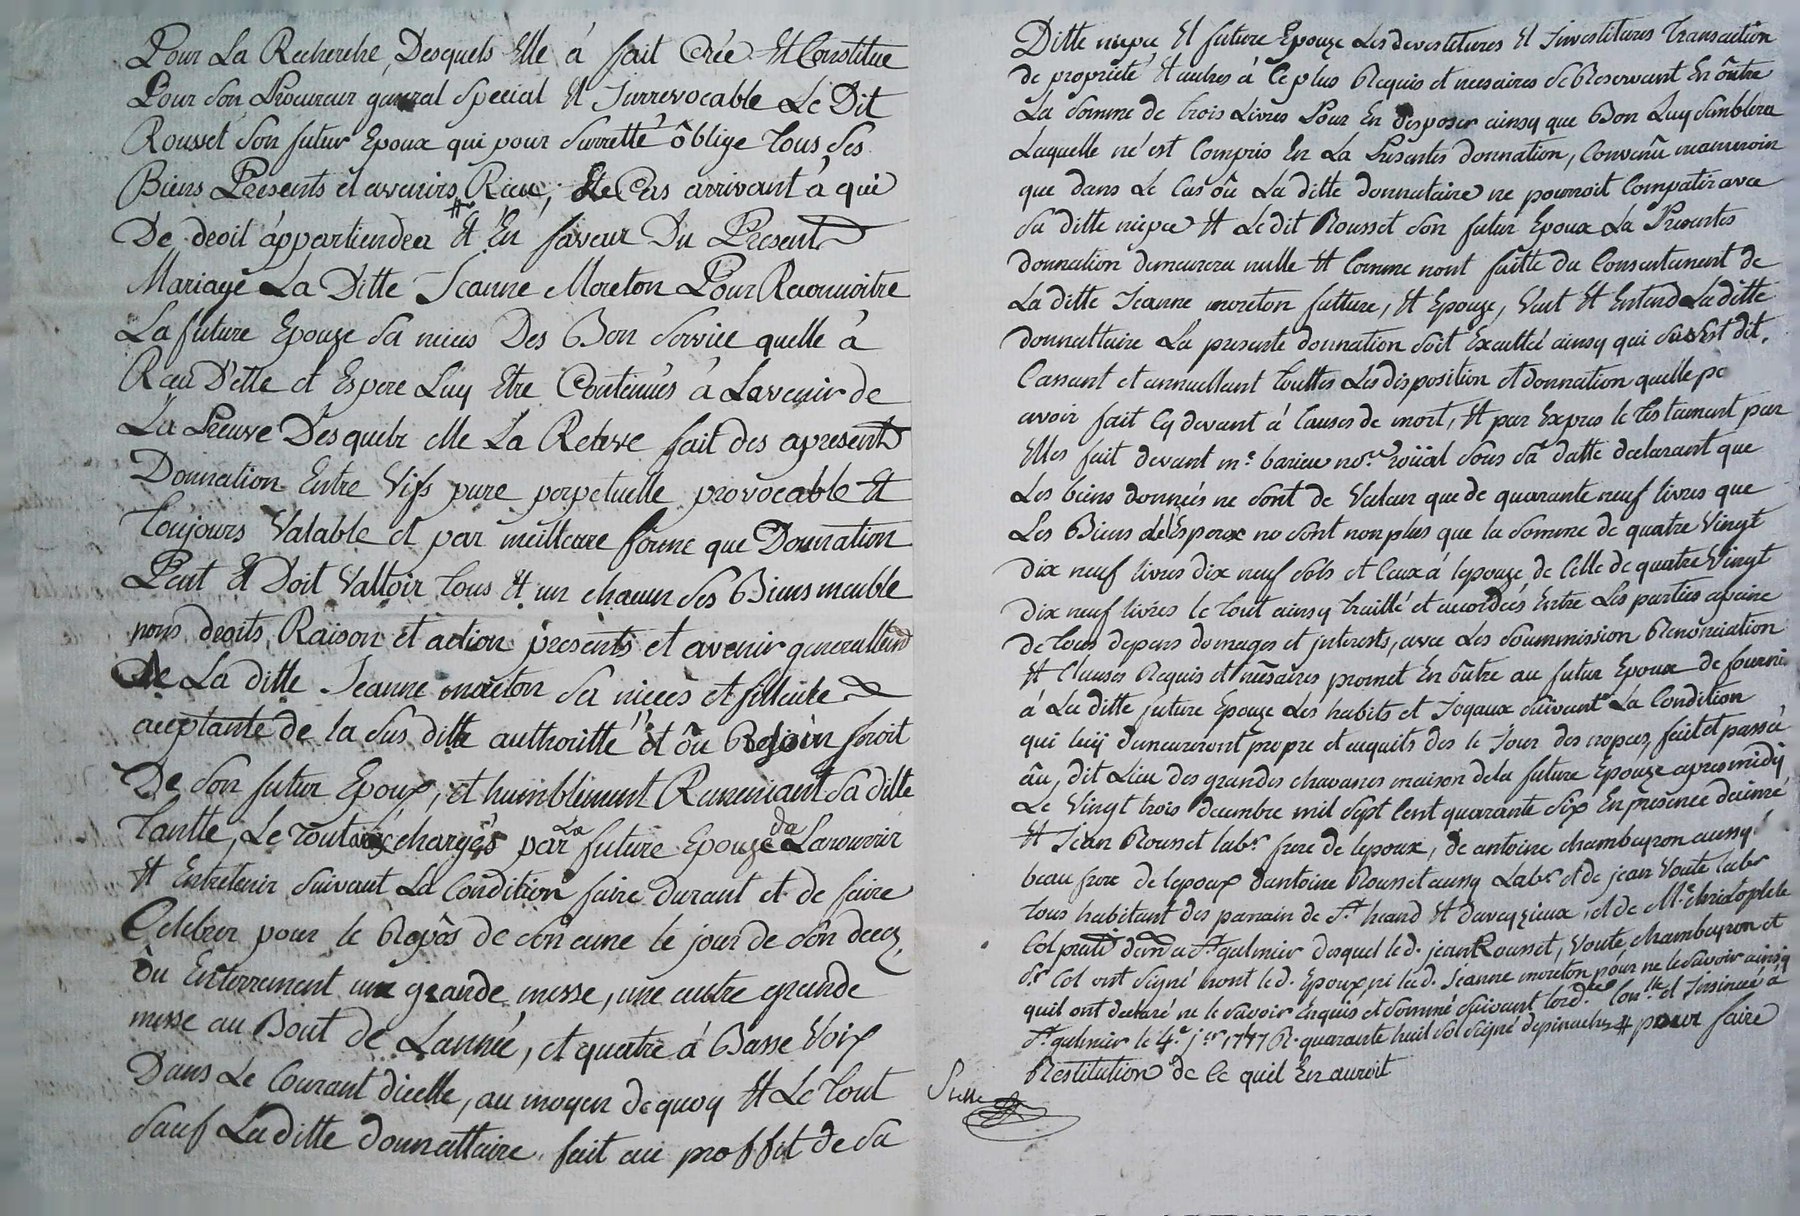 Pour La Recherche, Desquels Elle á fait Crée Et Constitue
Pour Son Procureur general Special Et Jurrevocable Le Dit
Rousset Son futur Epoux qui pour Surretté óblige tous Ses
Biens Presents et avenirs, Rieu, Et le Cas arrivant á qui
De droit áppartiendra # Et En faveur Du Present
Mariage La Ditte Jeanne Moreton Pour Reconnoitre
La future Epouze Sa niece Des Bon Service quelle á
Reçu D'elle et Espere Luy Etre Contenués á Lavenir de
La Preuve Desquels elle La Releve fait des apresent
Donnation Entre Vifs pure perpetuelle provocable Et
toujours Valable et par meilleure forme que Donnation
Peut Et Doit Valloir tous Et un chacun Ses Biens meuble
noms droits, Raison et action presents et avenir generallement
De La ditte Jeanne moreton Sa nieces et filleule
acceptante de la Sus ditte authoritté et óu Besoin seroit
De Son futur Epoux, et humblement Remerciant Sa ditte
tantte, Le tout aux charges par La future Epouze de La nourrir
Et Entretenir Suivant La Condition faire durant et de faire
Celebrer pour le Repôs de Son ame le jour de Son deces
óu Enterrement une grande messe, une autre grande
messe au Bout de Lannée, et quatre á Basse Voix
Dans Le Courant dicelle, au moyen de quoy Et Le tout
Sauf La ditte donnattaire fait au proffit de Sa
Ditte niepce Et future Epouze Les devestitures Et Investitures transaction
de proprieté Et autres á Ce plus Requis et nesaires Se Reservant En óutre
La Somme de trois Livres Pour En disposer ainsy que Bon Luy Semblera
Laquelle né est Compris En La Presentes donnation, Convenû neanmoin
que dans Le Cas oû La ditte donnataire ne pourroit Compatir avec
Sa ditte niepce Et Le dit Rousset Son futur Epoux La Presentes
donnation demeurera nulle Et Comme nont faitte du Consentement de
La ditte Jeanne moreton future, Et Epouze, Veut Et Entend La ditte
donnattaire La presente donnation Soit Executtée ainsy qui Sus Est dit.
Cassant et annuellant touttes Les disposition et donnation quelle
avoir fait Cy devant á Causes de mort, Et par Expres le testament par
Elles fait devant me. barieu nore. roüial Sous Sa datte declarant que
Les biens donnés ne Sont de Valeur que de quarante neuf livres que
Les Biens de l'Epoux ne Sont non plus que la Somme de quatre Vingt
dix neuf livres dix neuf Sols et Ceux á lepouze de Celle de quatre Vingt
dix neuf livres le tout ainsy traitté et accordées Entre Les parties apeine
de tous depens domages et interests, avec Les Soummission Renonciation
Et Clauses Requis et nésaires promet En óûtre au futur Epoux de fournir
á La ditte future Epouze Les habits et Joyaux Suivant La Condition
qui luy demeureront propre et acquits des le Jour des nopces, fait et passé
âu, dit Lieu des grandes chavanes maison dela future Epouze apres midy
Le Vingt trois decembre mil Sept Cent quarante Six En presence
Et Jean Rousset labr. frere de lepoux, de antoine chambeyron aussy
beau frere de lepoux dantoine Rousset aussy Labr. et de jean Voute labr
tous habitant des parrain de St. heand Et daveyzieux, et de Me. christophle
Col prati St. galmier desquel le d. jean Rousset, Voute, chambeyron et
Sr. Col ont Signé nont le d. Epoux, ni la d. Jeanne moreton pour ne le Savoir ainsy
quil ont declaré ne le Savoir Enquis et Sommé Suivant lord.ce et Jnsinué á
St. galmier le 4e. jer 1747 R. quarante huit Sol Signé depinacher # pour faire
Restitution de Ce quil En auroit